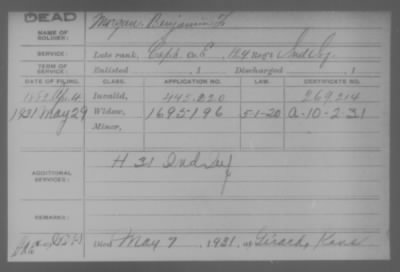 DEAD
NAME OF SOLDIER: Morgan, Benjamin F
SERVICE: Late rank, Capt Co E, 124 Reg't Ind Inf
TERM OF SERVICE: Enlisted , 1 Discharged , 1
DATE OF FILING. CLASS. APPLICATION NO. LAW. CERTIFICATE NO.
1882 4 Invalid, 445,220 269,214
1931 May 29 Widow, 1695196 5-1-20 A-10-2-31
Minor,
ADDITIONAL SERVICES: H 31 Ind Inf
REMARKS:
Died May 7, 1931, at Girard, Kans